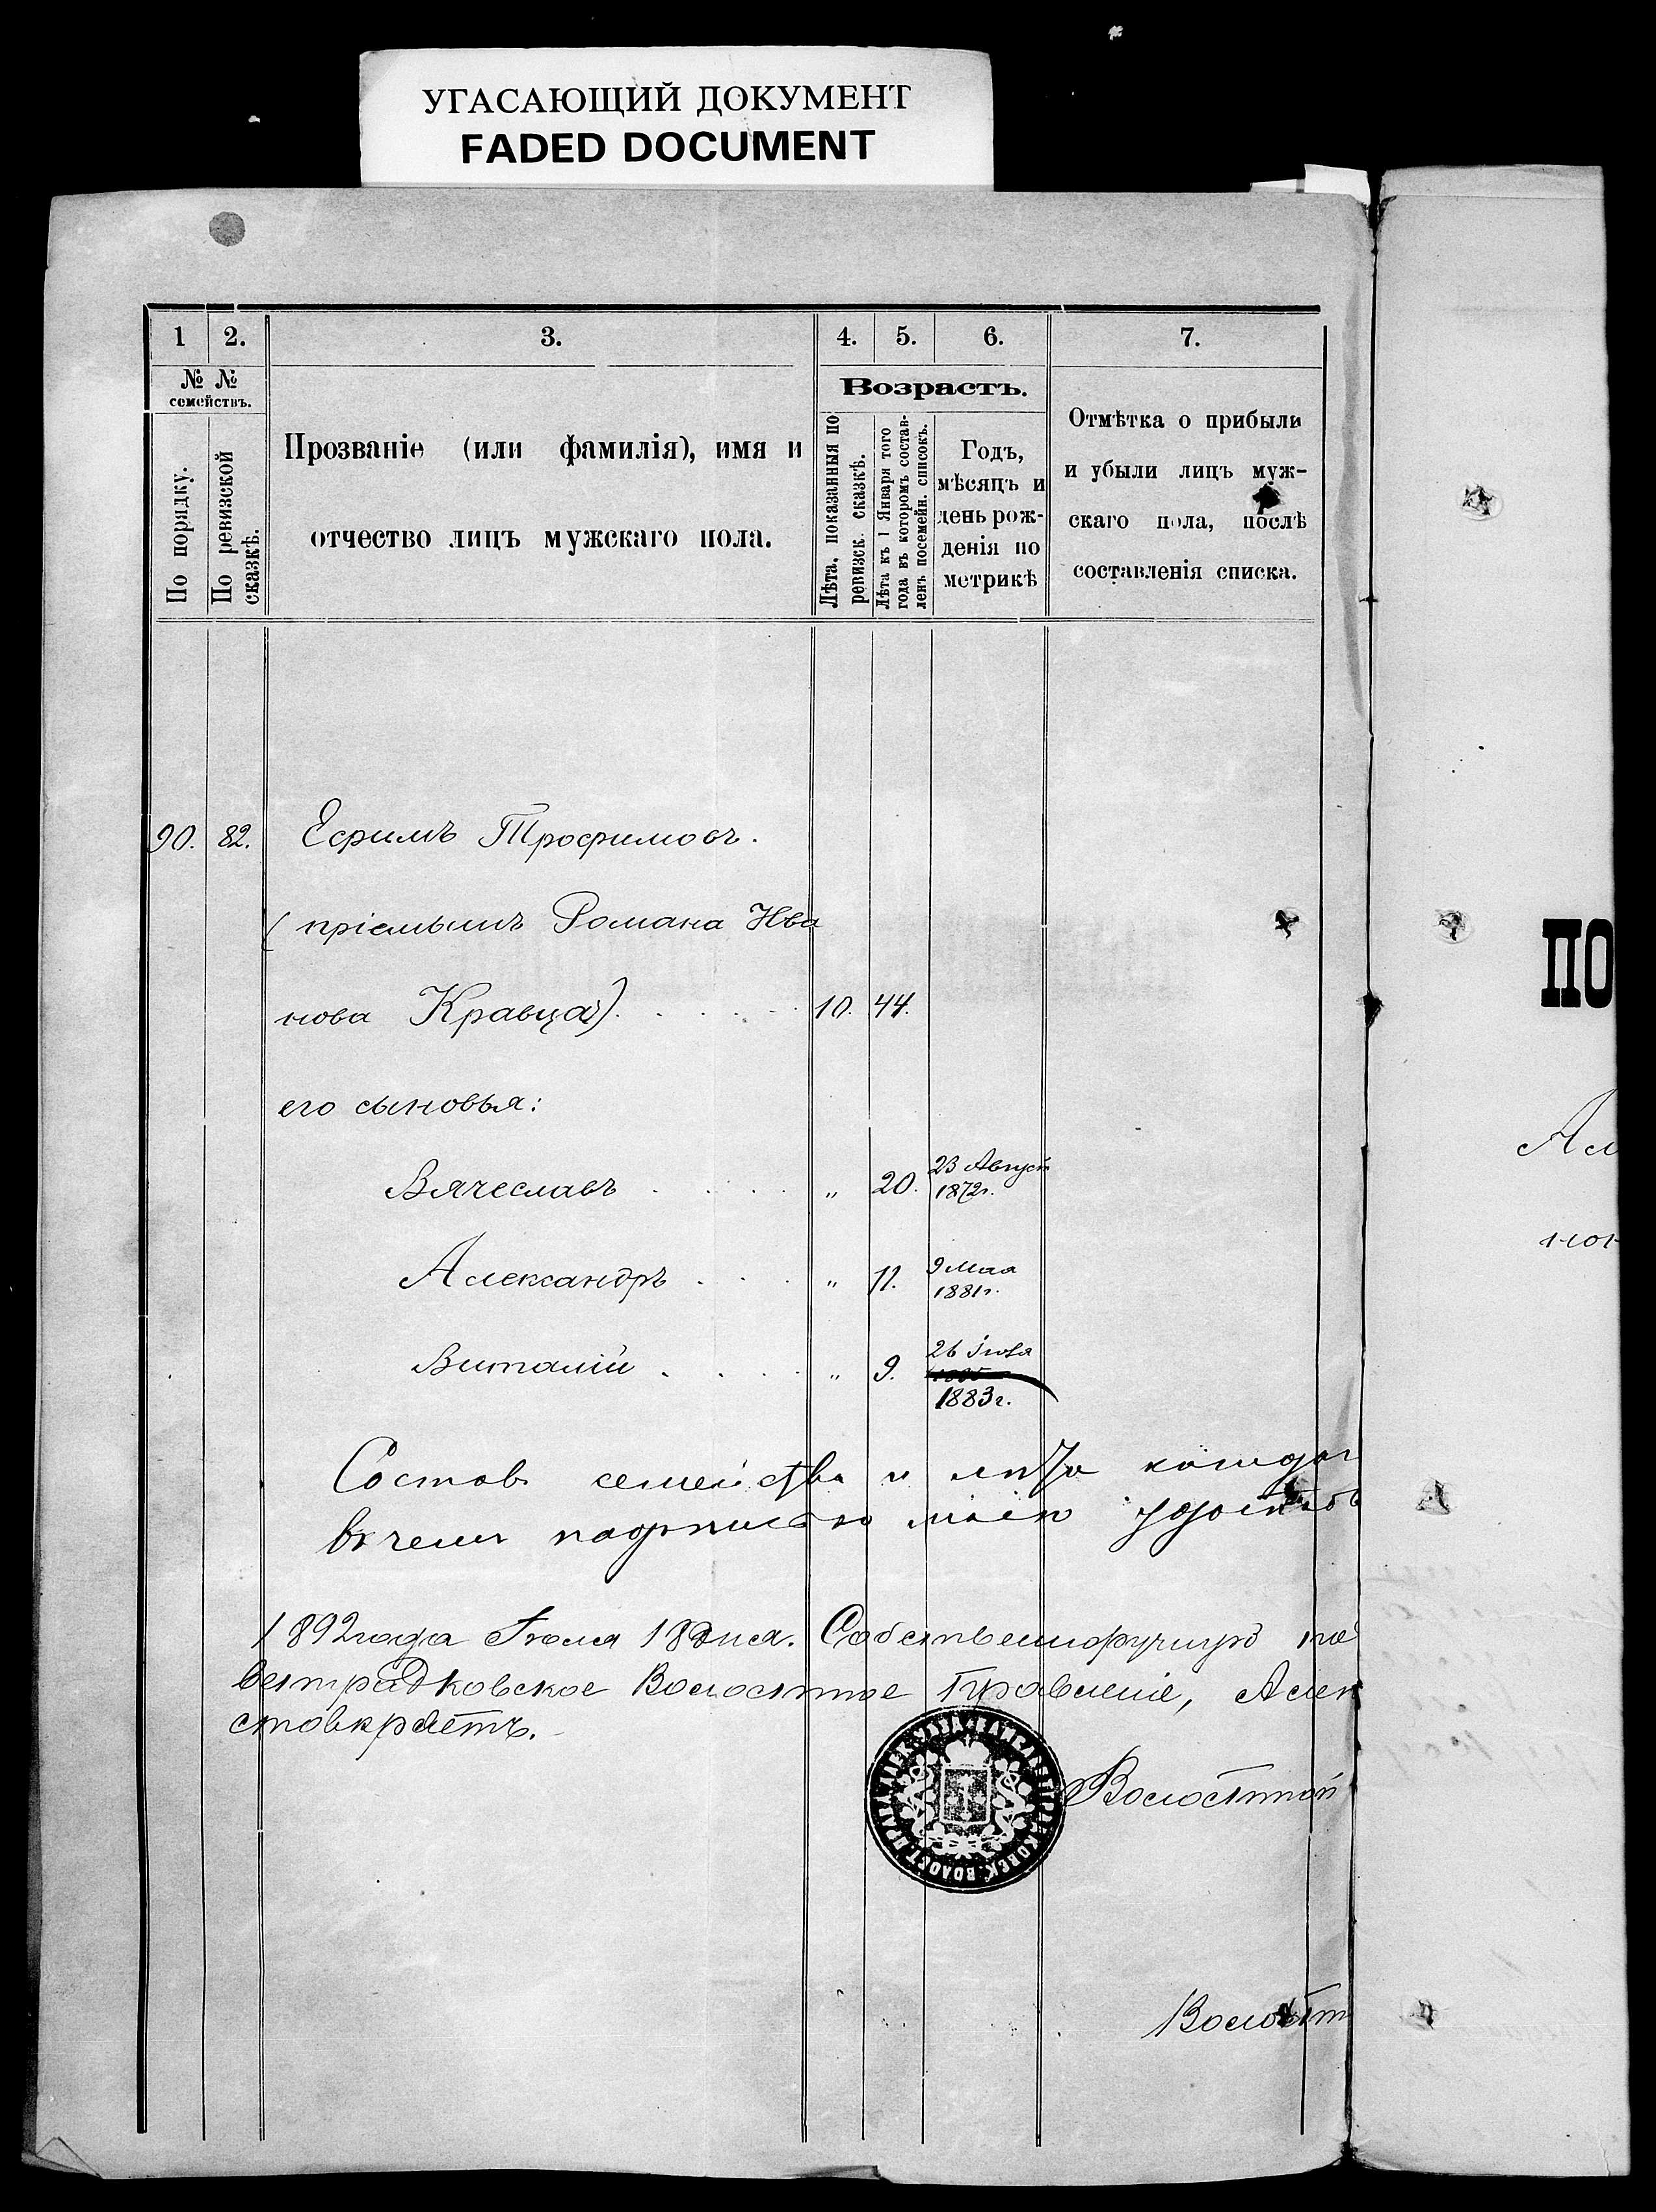 УГАСАЮЩИЙ ДОКУМЕНТ
FADED DOCUMENT
1 2. 3. 4. 5. 6. 7.
№ № семействъ.
По порядку.
По ревизской сказкѣ.
Прозваніе (или фамилія), имя и
отчество лицъ мужскаго пола.
Возрастъ.
Лѣта, показанныя по
ревизск. сказкѣ.
Лѣта къ 1 Января того
года въ которомъ состав-
ленъ посемейн. списокъ.
Годъ,
мѣсяцъ и
день рож-
денія по
метрикѣ
Отмѣтка о прибыли
и убыли лицъ муж-
скаго пола, послѣ
составленія списка.
90. 82. Ефимъ Трофимовъ.
(пріемышъ Романа Ива
нова Кравца) 10. 44.
его сыновья:
Вячеславъ " 20. 23 Август
1872г.
Александръ " 11. 9 Мая
1881г.
Виталій " 9. 26
1883г.
Состав семейства и
в чем подписью моею
1892 года Іюля 18 дня.
Волостное Правленіе, Алек
Волостной
Волостн
ПО
Ал
нон